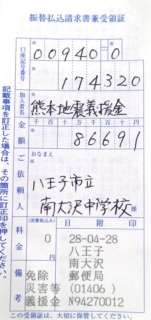 振替払込請求書兼受領証
口座記号番号
00940-0
174320
加入者名
熊本地震義援金
金額
千 百 十 万 千 百 十 円
86691
ご依頼人
おなまえ
八王子市立
南大沢中学校 様
料金
(消費税込み)
0
備考
28-04-28
八王子
南大沢
免除 郵便局
災害等 (01406)
義援金 N94270012
記載事項を訂正した場合は、その箇所に訂正印を押してください。
この受領証は、大切に保管してください。